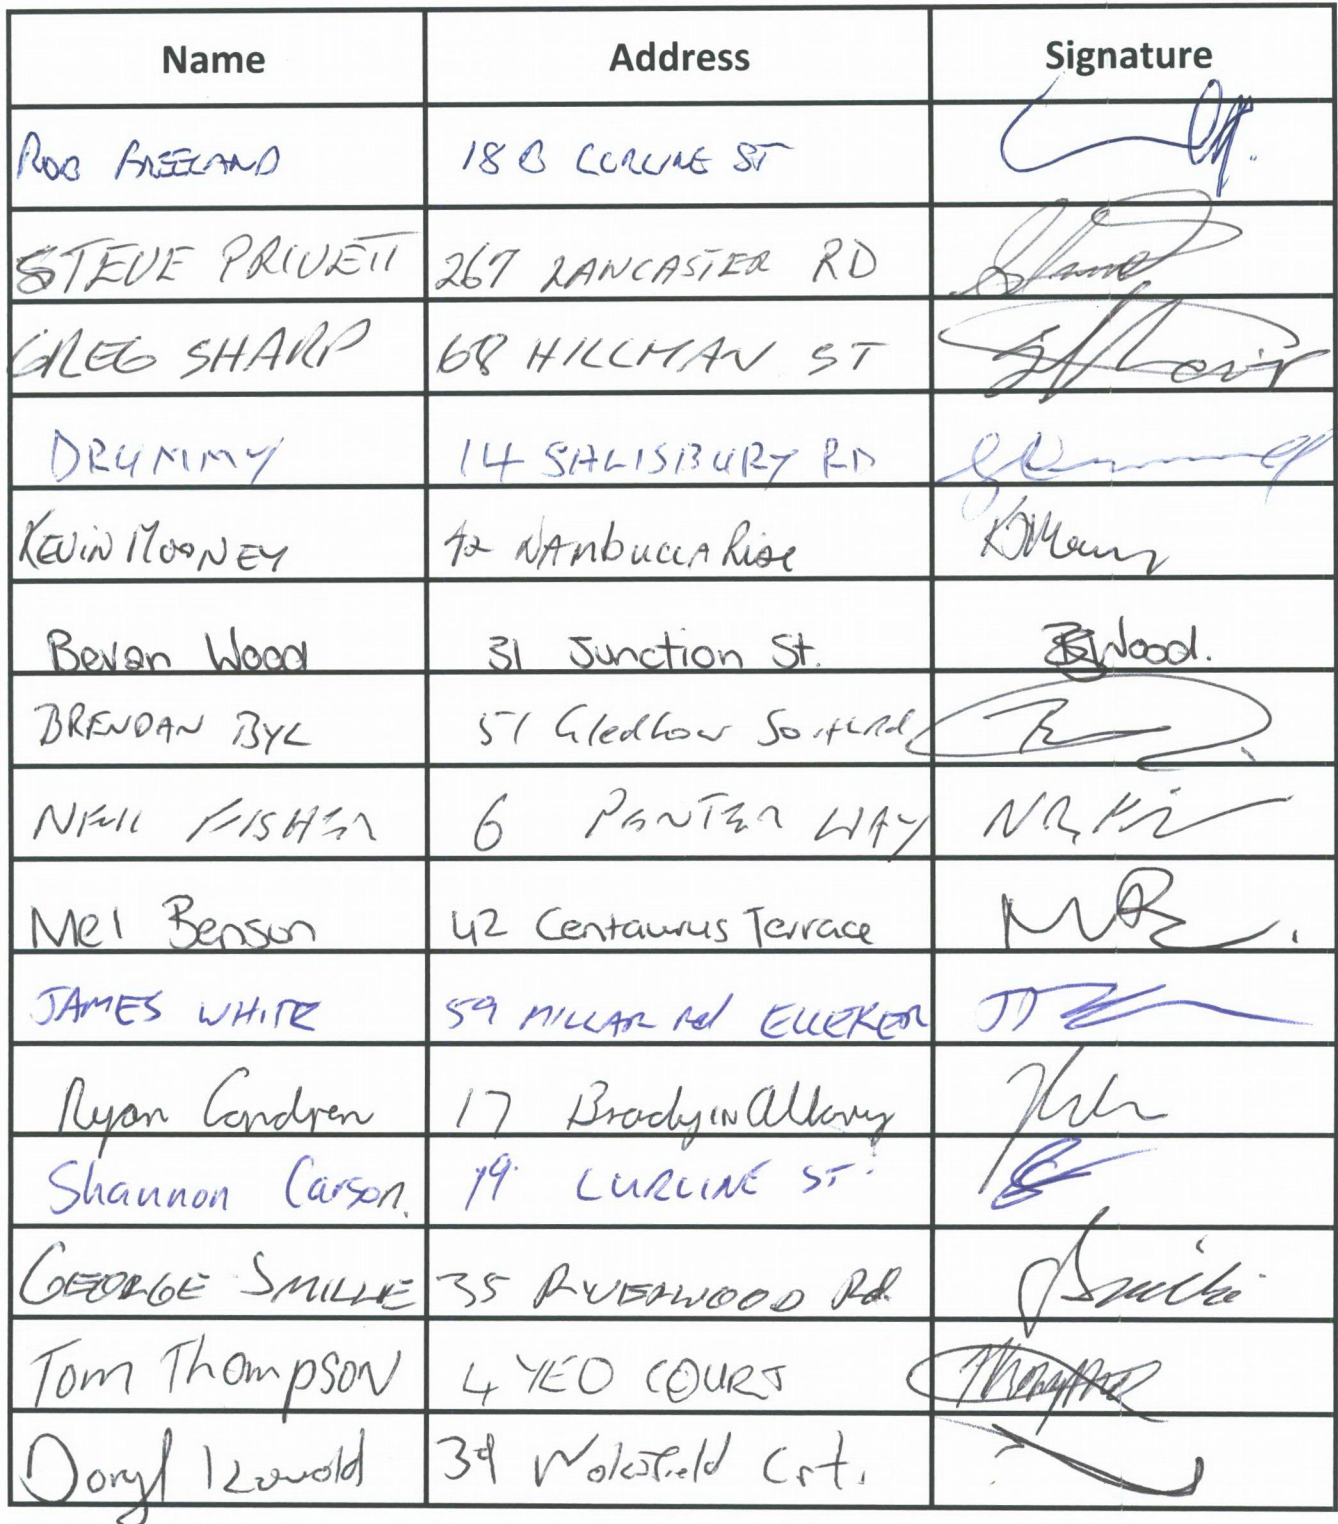 Name Address Signature
ROB FREELAND 18 B LURLINE ST
STEVE PRIVETT 267 LANCASTER RD
GREG SHARP 68 HILLMAN ST
DRUMMY 14 SALISBURY RD
KEVIN MOONEY 42 NAMBUCCA Rise KJMooney
Bevan Wood 31 Junction St. BWood.
BRENDAN BYL 51 Gledhow South Rd
NEIL FISHER 6 PANTER WAY
Mel Benson 42 Centaurus Terrace
JAMES WHITE 59 MILLAR Rd ELLEKER
Ryan Condren 17 Brady
Shannon Carson. 19 LURLINE ST
GEORGE SMILLIE 35 RIVERWOOD Rd. Smillie
Tom Thompson 4 YEO COURT Thompson
Daryl 39 Crt.